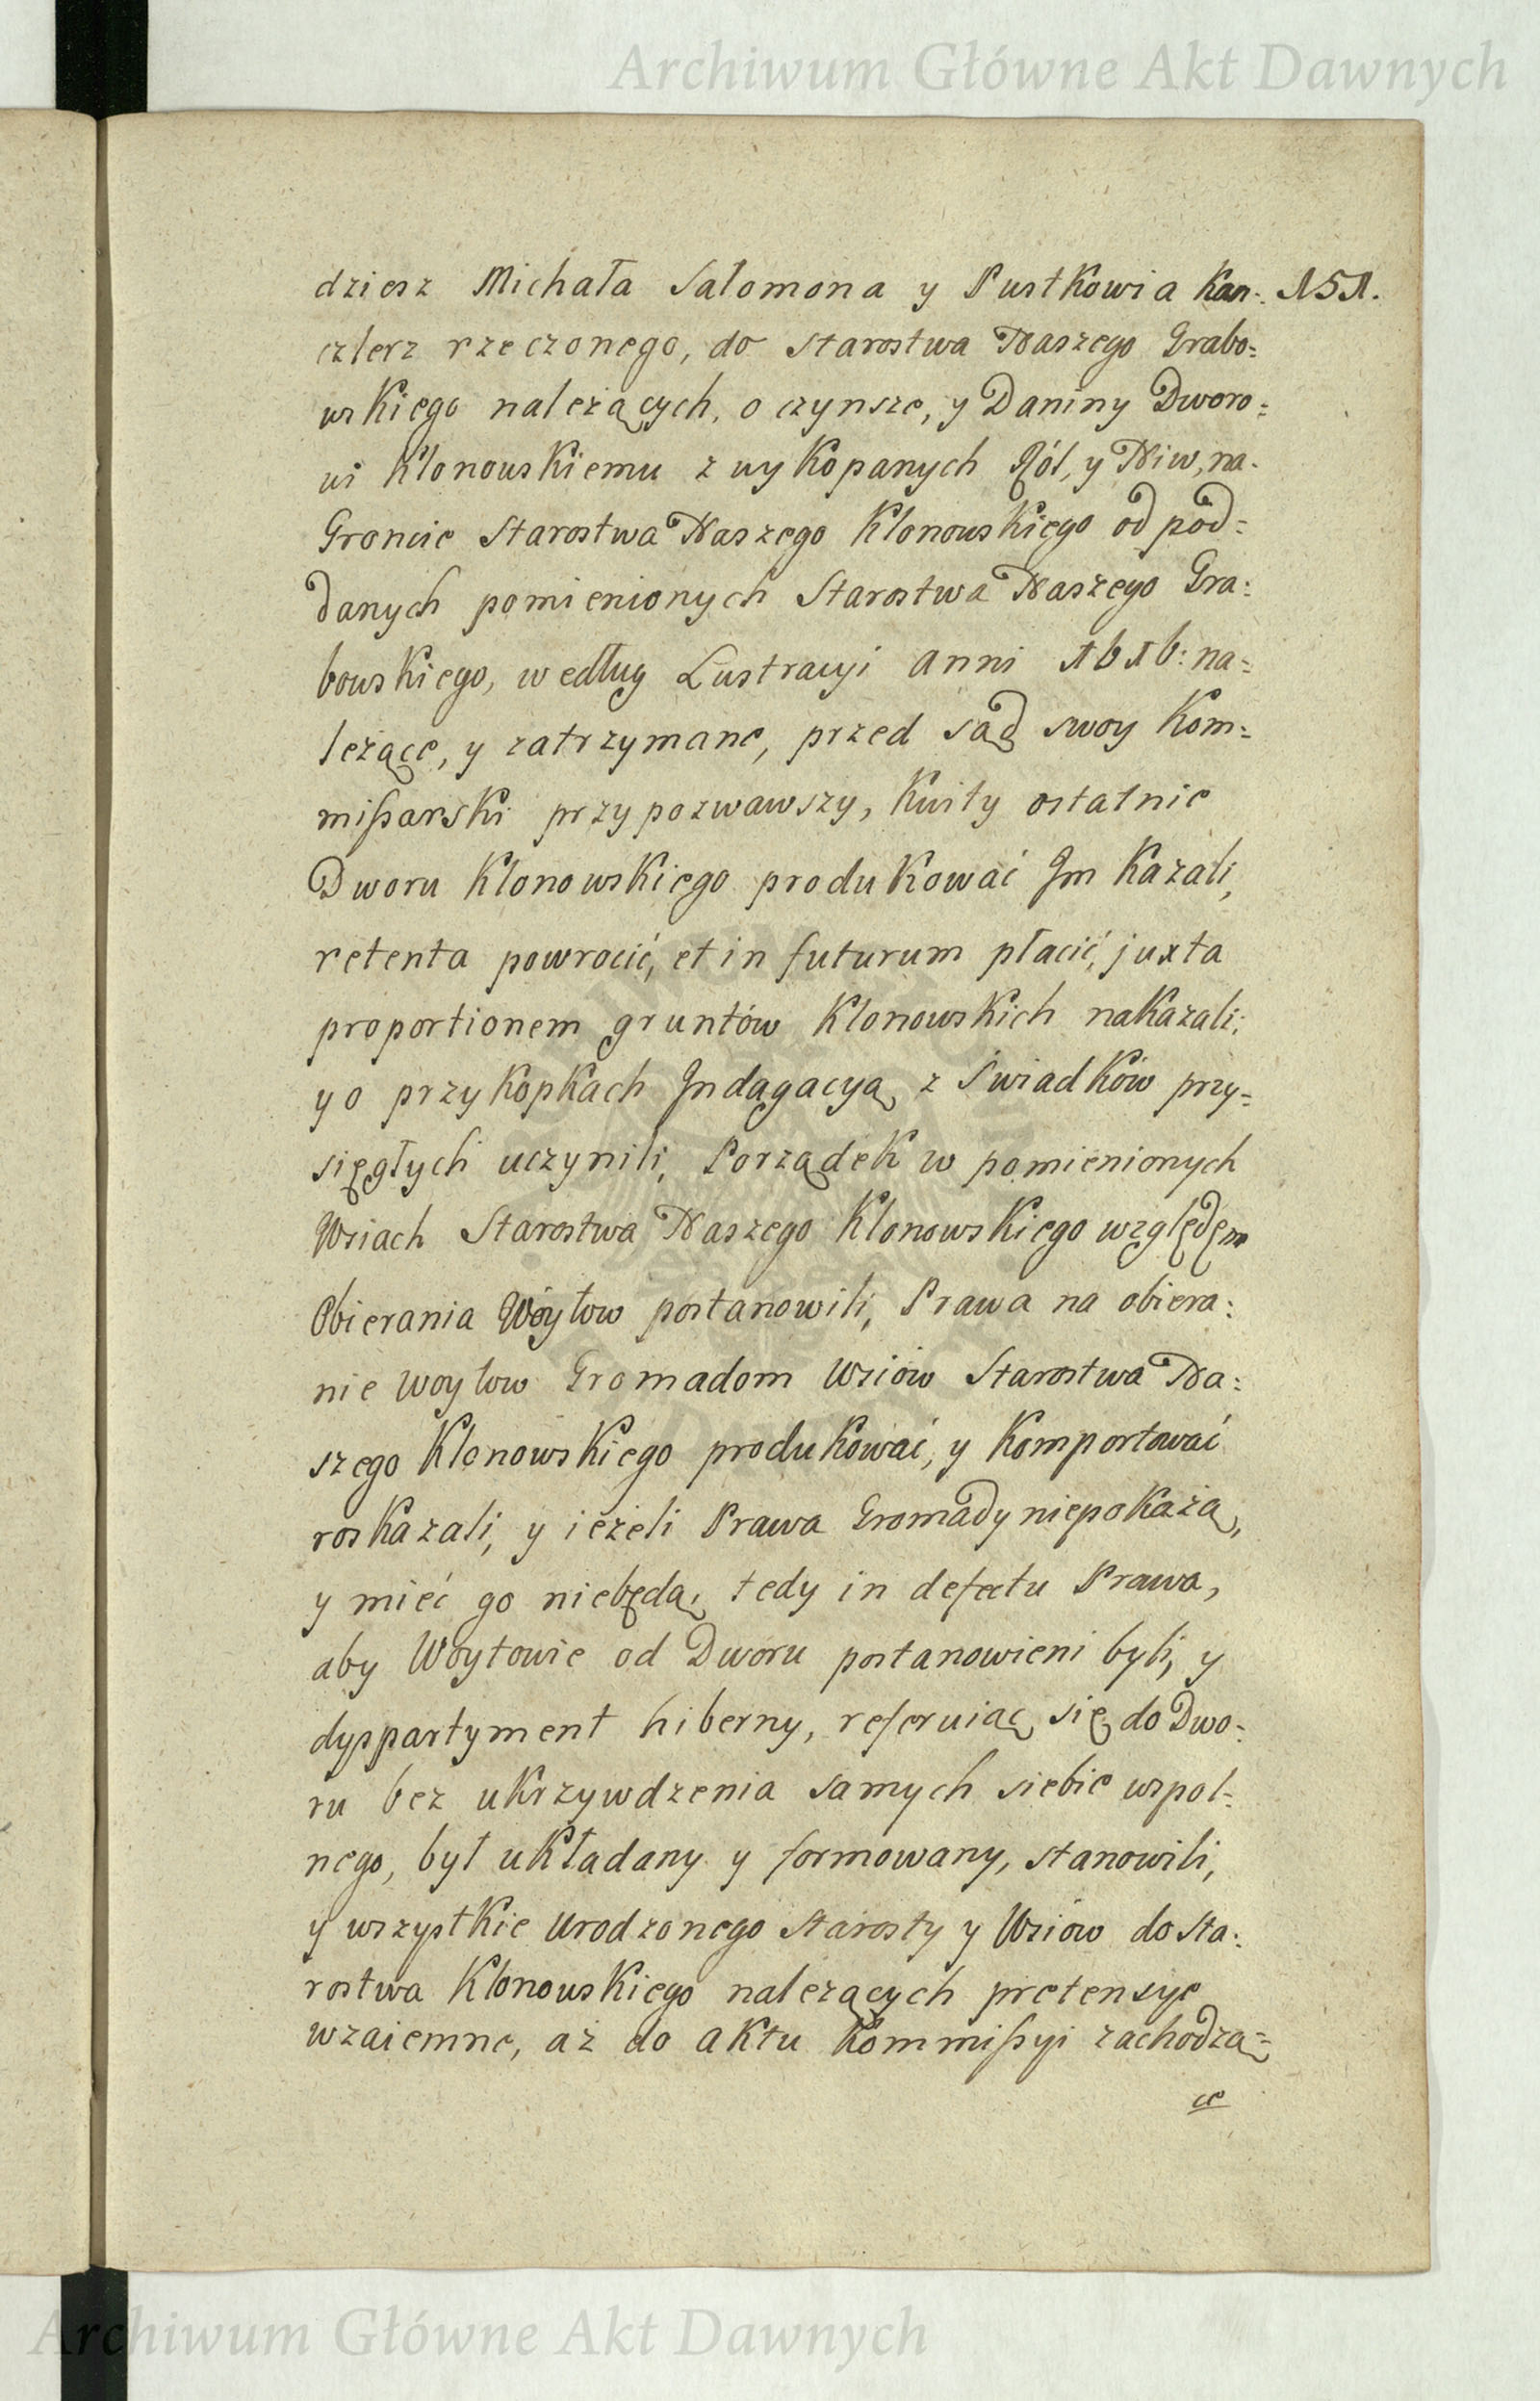 Archiwum Główne Akt Dawnych
dziesz Michała Salomona y Pustkowia Kan: 151.
czlerz rzeczonego, do Starostwa Naszego Grabo=
wskiego należących, o czynsze, y Daniny Dworo=
wi Klonowskiemu z wykopanych Ról, y Niw, na-
Gróncie Starostwa Naszego Klonowskiego od pod=
danych pomienionych Starostwa Naszego Gra=
bowskiego, według Lustracyi anni 1616: na=
leżące, y zatrzymane, przed sąd swoy Kom=
mißarski przypozwawszy, Kwity ostatnie
Dworu Klonowskiego produkować Im Kazali,
retenta powrocić, et in futurum płacić, juxta
proportionem gruntów Klonowskich nakazali;
y o przykopkach Indagacyą z Swiadków przy=
sięgłych uczynili, Porządek w pomienionych
Wsiach Starostwa Naszego Klonowskiego względem
Obierania Wóytow postanowili, Prawa na obiera=
nie Woytow Gromadom Wsiów Starostwa Na=
szego Klonowskiego produkować, y Komportować
roskazali, y ieżeli Prawa Gromady niepokażą,
y mieć go niebędą, tedy in defectu Prawa,
aby Woytowie od Dworu postanowieni byli, y
dyspartyment hiberny, referuiąc się do Dwo=
ru bez ukrzywdzenia samych siebie wspol=
nego, był układany y formowany, stanowili,
y wszystkie Urodzonego Starosty y Wsiów do Sta=
rostwa Klonowskiego należących pretensye
wzaiemne, aż do aktu Kommißyi zachodzą=
ce
Archiwum Główne Akt Dawnych